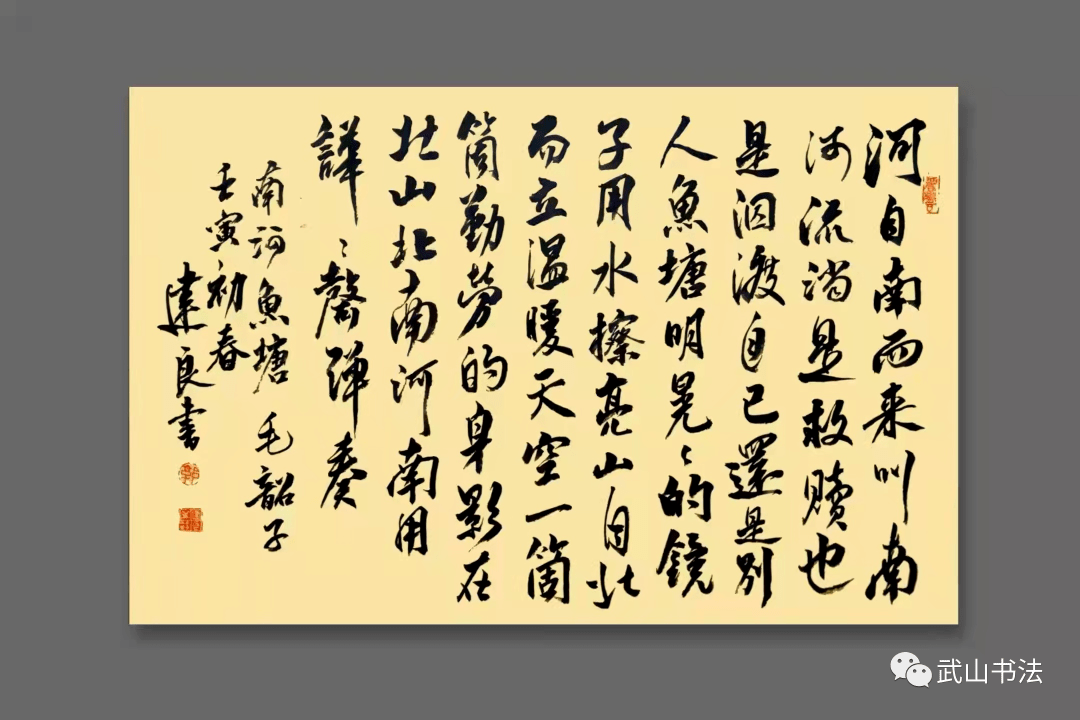 河自南而来叫南
河流淌是救赎也
是泅渡自己還是别
人魚塘明晃〻的鏡
子用水擦亮山自北
而立温暖天空一箇
箇勤劳的身影在
北山北南河南用
譁〻馨弹奏
南河魚塘 毛韶子
壬寅初春
建良書
武山书法